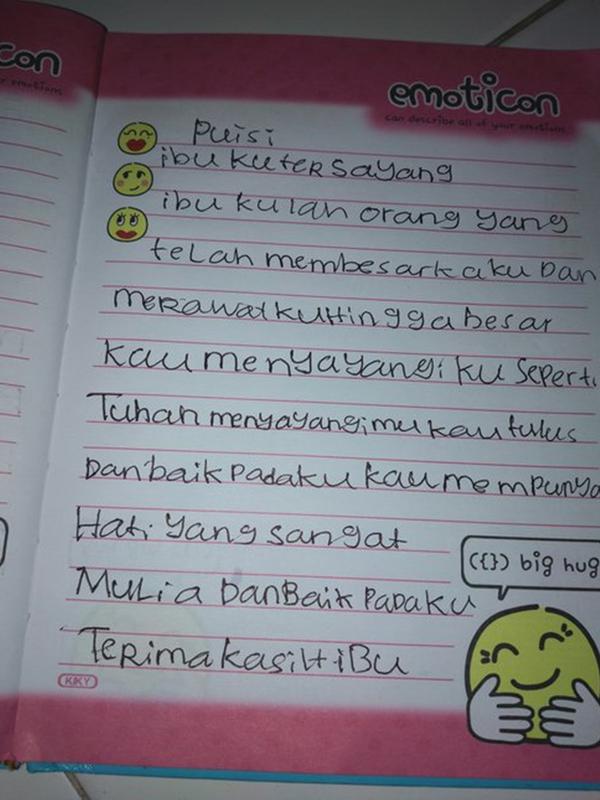 con
emoticon
can describe all of your emotions
Puisi
ibu kuterSayang
ibu kulah orang yang
telah membesarkaku Dan
merawatkuHingga besar
Kau menyayangiku Seperti
Tuhan menyayangimu kau tulus
Dan baik Padaku kau mempunya
Hati yang sangat
({}) big hug
Mulia DanBaik PADAKU
TeRima kasiHiBu
KKY